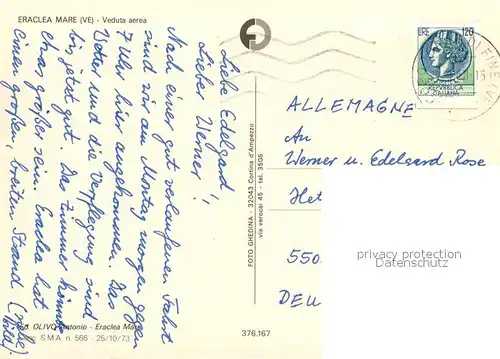 ERACLEA MARE (VE) - Veduta aerea
Liebe Edelgard,
Lieber Werner!
Nach einer gut verlaufenen Fahrt
sind wir am Montag morgen gegen
7 Uhr hier angekommen. Das
Wetter und die Verpflegung sind
bis jetzt gut. Das Zimmer könnte
etwas größer sein. Eraclea hat
einen großen, breiten Strand (siehe
Bild).
Ed. OLIVO Antonio - Eraclea Mare
S.M.A. n. 566 - 25/10/73
FOTO GHEDINA - 32043 Cortina d'Ampezzo
via verocai 45 - tel. 3505
376.167
LIRE 120
ALLEMAGNE
An
Werner u. Edelgard Rose
Het
550
DEU
privacy protection
Datenschutz